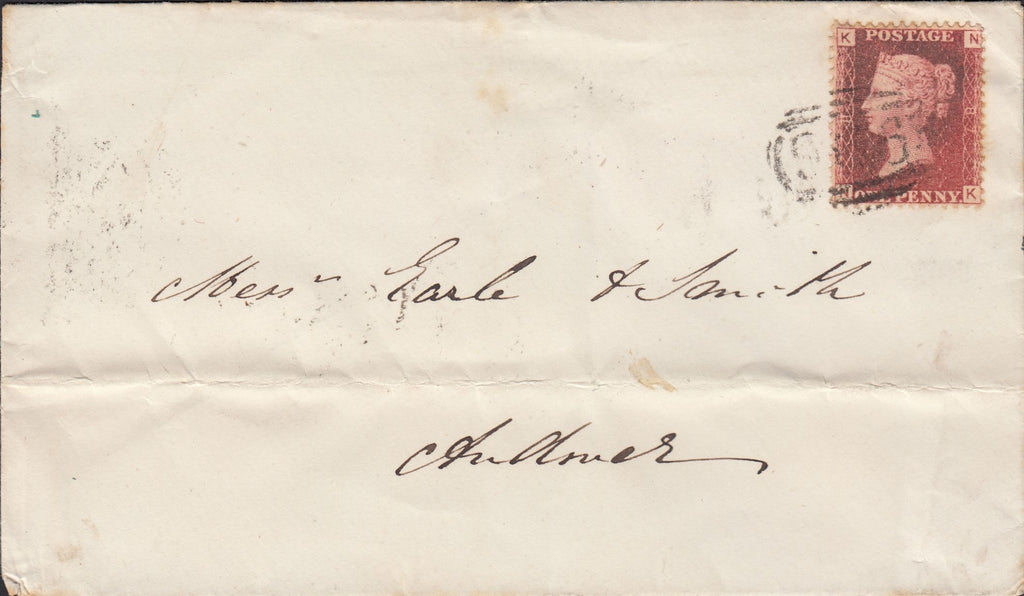 K POSTAGE N
ONE PENNY K
Messrs Earle & Smith
Andover